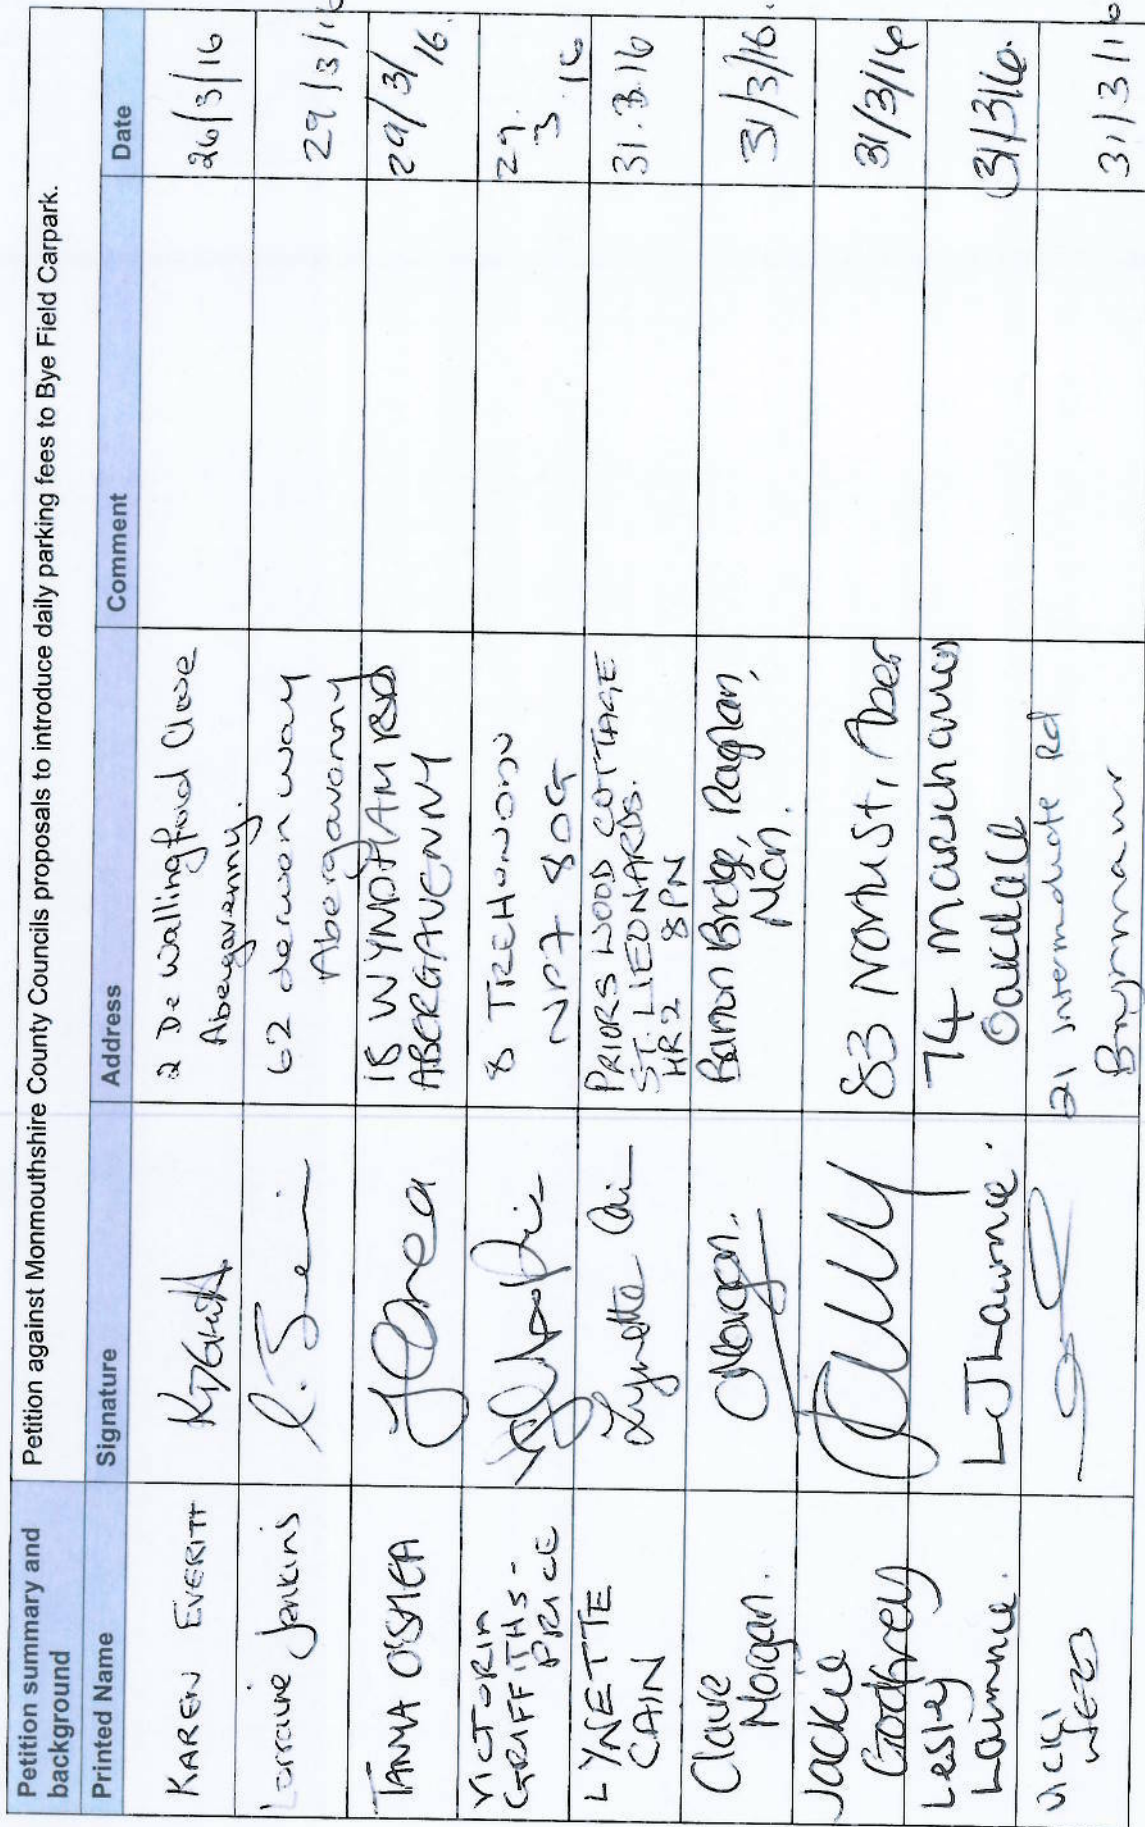 Petition summary and background
Petition against Monmouthshire County Councils proposals to introduce daily parking fees to Bye Field Carpark.
Printed Name Signature Address Comment Date
KAREN EVERITT
2 De Wallingford Close
Abergavenny.
26/3/16
Lorraine Jenkins
62 derwen way
Abergavanny
29/3/16
TANYA O'SHEA
18 WYNDHAM RD
ABERGAVENNY
29/3/16.
VICTORIA
GRIFFITHS-
PRICE
8 TREHONDDU
NP7 8DG
29.
3.16
LYNETTE
CAIN
Lynette
PRIORS WOOD COTTAGE
ST. LEONARDS.
HR2 8PN
31.3.16
Claire
Morgan.
CMorgan.
Bridge, Raglan,
Mon.
31/3/16.
Jackie
Godfrey
83 North St, Aber
31/3/16
Lesley
Lawrence.
LJLawrence.
74
Oakdale
31/3/16.
Vicki
21 Intermediate Rd
Brynmawr
31/3/16